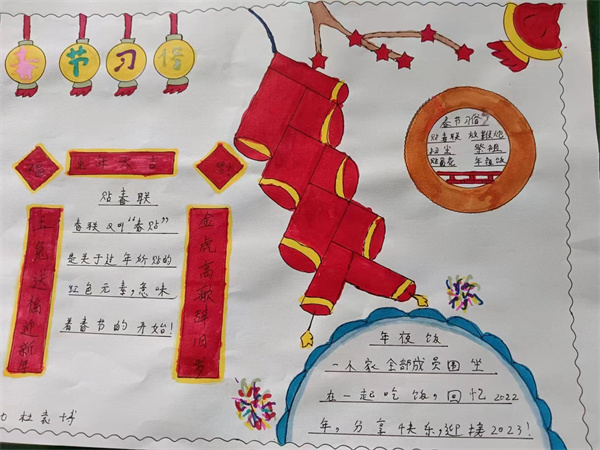 春节习俗
春节习俗
贴春联 放鞭炮
扫尘 祭祖
贴窗花 年夜饭
福
大吉
贴春联
春联又叫“春贴”
是关于过年所贴的
红色元素,意味
着春节的开始!
玉兔送福迎新年
金虎高歌辞旧岁
年夜饭
家全部成员围坐
在一起吃饭,回忆2022
年,分享快乐,迎接2023!